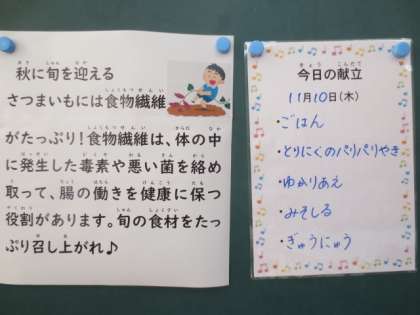 秋に旬を迎える
さつまいもには食物繊維
がたっぷり！食物繊維は、体の中
に発生した毒素や悪い菌を絡め
取って、腸の働きを健康に保つ
役割があります。旬の食材をたっ
ぷり召し上がれ♪
今日の献立
11月10日(木)
・ごはん
・とりにくのパリパリやき
・ゆかりあえ
・みそしる
・ぎゅうにゅう